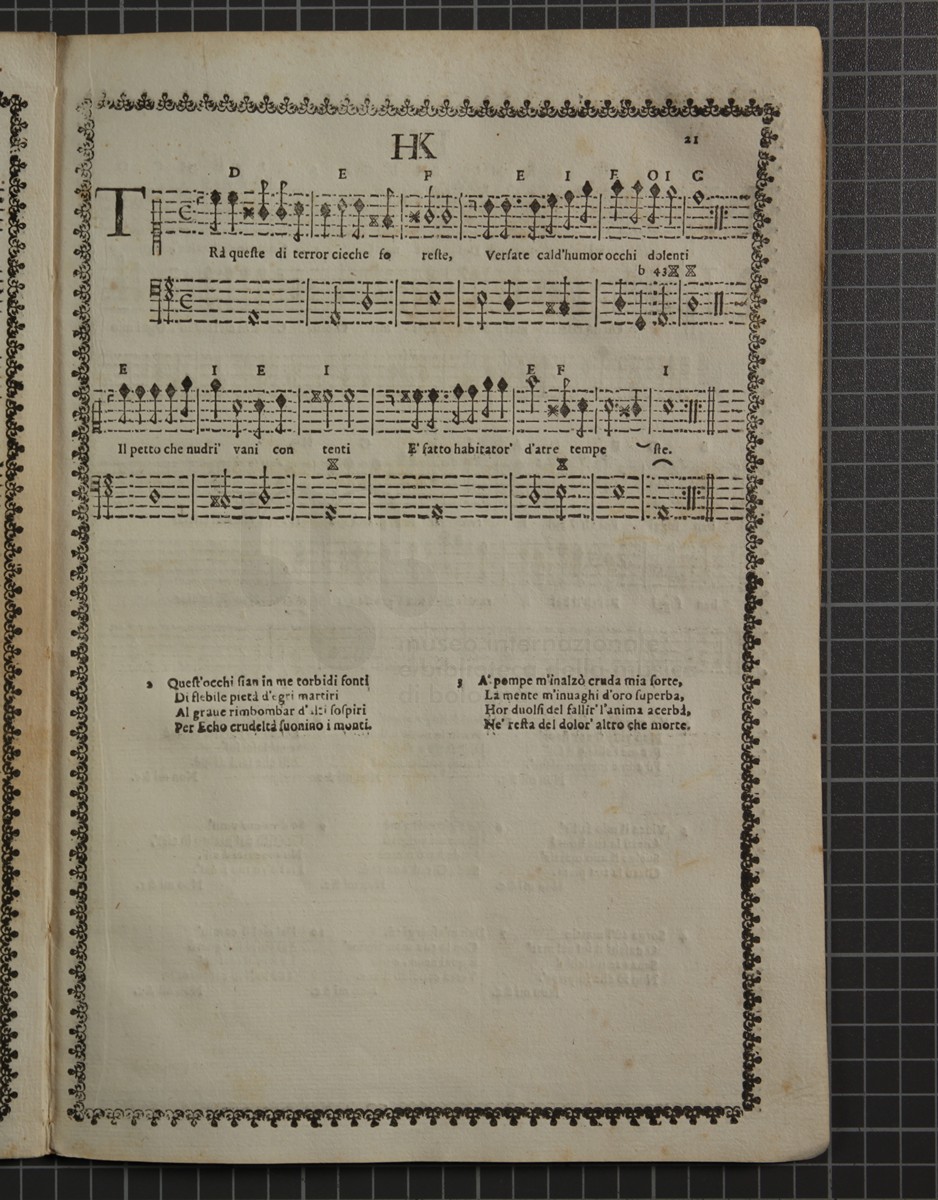 HK
21
D E F E I E O I G
T
Rà queste di terror cieche fo reste, Versate cald'humor occhi dolenti
b 43
E I E I E F I
Il petto che nudri' vani con tenti E' fatto habitator' d'atre tempe ste.
2 Quest'occhi sian in me torbidi fonti
Di flebile pietà d'egri martiri
Al graue rimbombar d'alti sospiri
Per Echo crudeltà suonino i monti.
3 A' pompe m'inalzò cruda mia sorte,
La mente m'inuaghi d'oro superba,
Hor duolsi del fallir' l'anima acerba,
Ne' resta del dolor' altro che morte.
museo internazionale
e biblioteca della musica
di